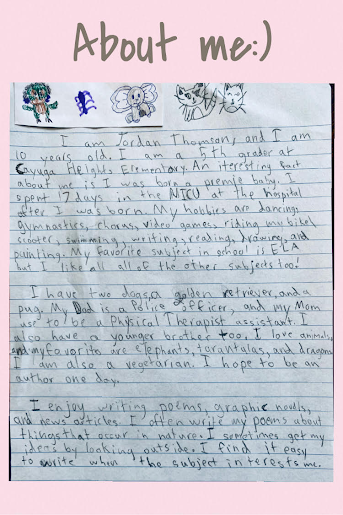 About me:)
I am Jordan Thomson, and I am
10 years old. I am a 5th grader at
Cayuga Heights Elementary. An iteresting fact
about me is I was born a premie baby. I
spent 17 days in the NICU at the hospital
after I was born. My hobbies are dancing,
gymnastics, chorus, video games, riding my bike/
scooter, swimming, writing, reading, drawing, and
painting. My favorite subject in school is ELA
but I like all all of the other subjects too!
I have two dogs, a golden retriever, and a
pug. My Dad is a Police officer, and my Mom
use to be a Physical Therapist assistant. I
also have a younger brother too. I love animals,
and my favorite are elephants, tarantulas, and dragons.
I am also a vegetarian. I hope to be an
author one day.
I enjoy writing poems, graphic novels,
and news articles. I often write my poems about
things that occur in nature. I sometimes get my
ideas by looking outside. I find it easy
to write when the subject interests me.